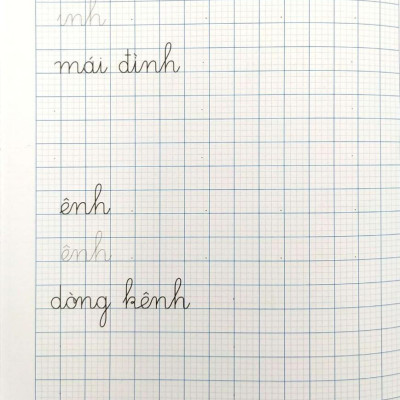 inh
mái đình
ênh
ênh
dòng kênh